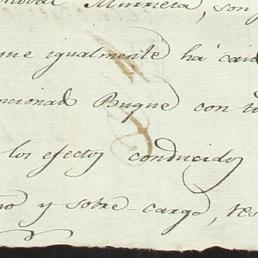 Murrieta, son
que igualmente ha
Buque con
los efectos conducidos
y sobre-cargo,